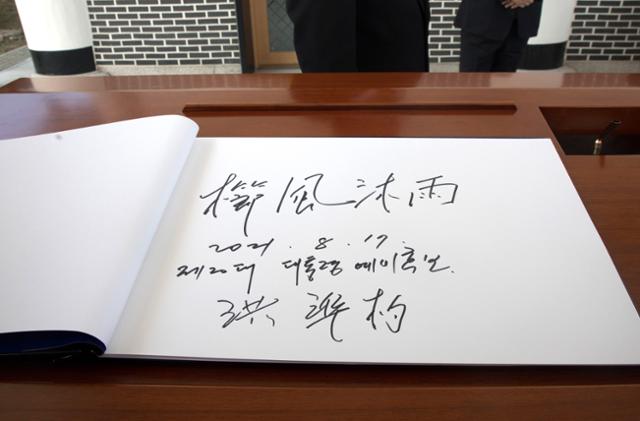 櫛風沐雨
2021. 8. 17.
제20대 대통령 예비후보
洪準杓